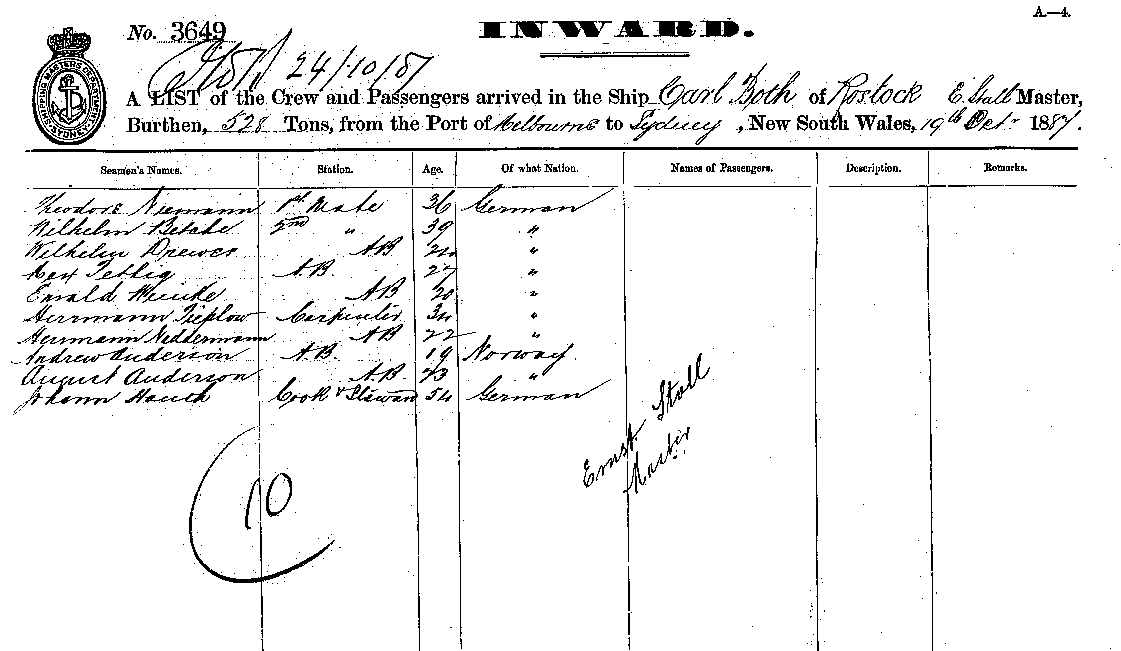 A.—4.
No. 3649 INWARD.
24/10/87
A LIST of the Crew and Passengers arrived in the Ship Carl Both of Rostock E. Stall Master,
Burthen, 528 Tons, from the Port of Melbourne to Sydney, New South Wales, 19th Oct. 1887.
SHIPPING MASTERS DEPARTMENT SYDNEY
Seamen's Names. Station. Age. Of what Nation. Names of Passengers. Description. Remarks.
Theodore Niemann 1st Mate 36 German
Wilhelm 2nd " 39 "
Wilhelm Drewes A.B "
Max A.B. 27 "
Ewald A.B 20 "
Herrmann Tieplow Carpenter 34 "
Herrmann Neddermann A.B 22 "
Andrew Anderson A.B. 19 Norway
August Anderson A.B 23 "
Johann Cook & Steward 54 German
Ernst Stall
Master
10